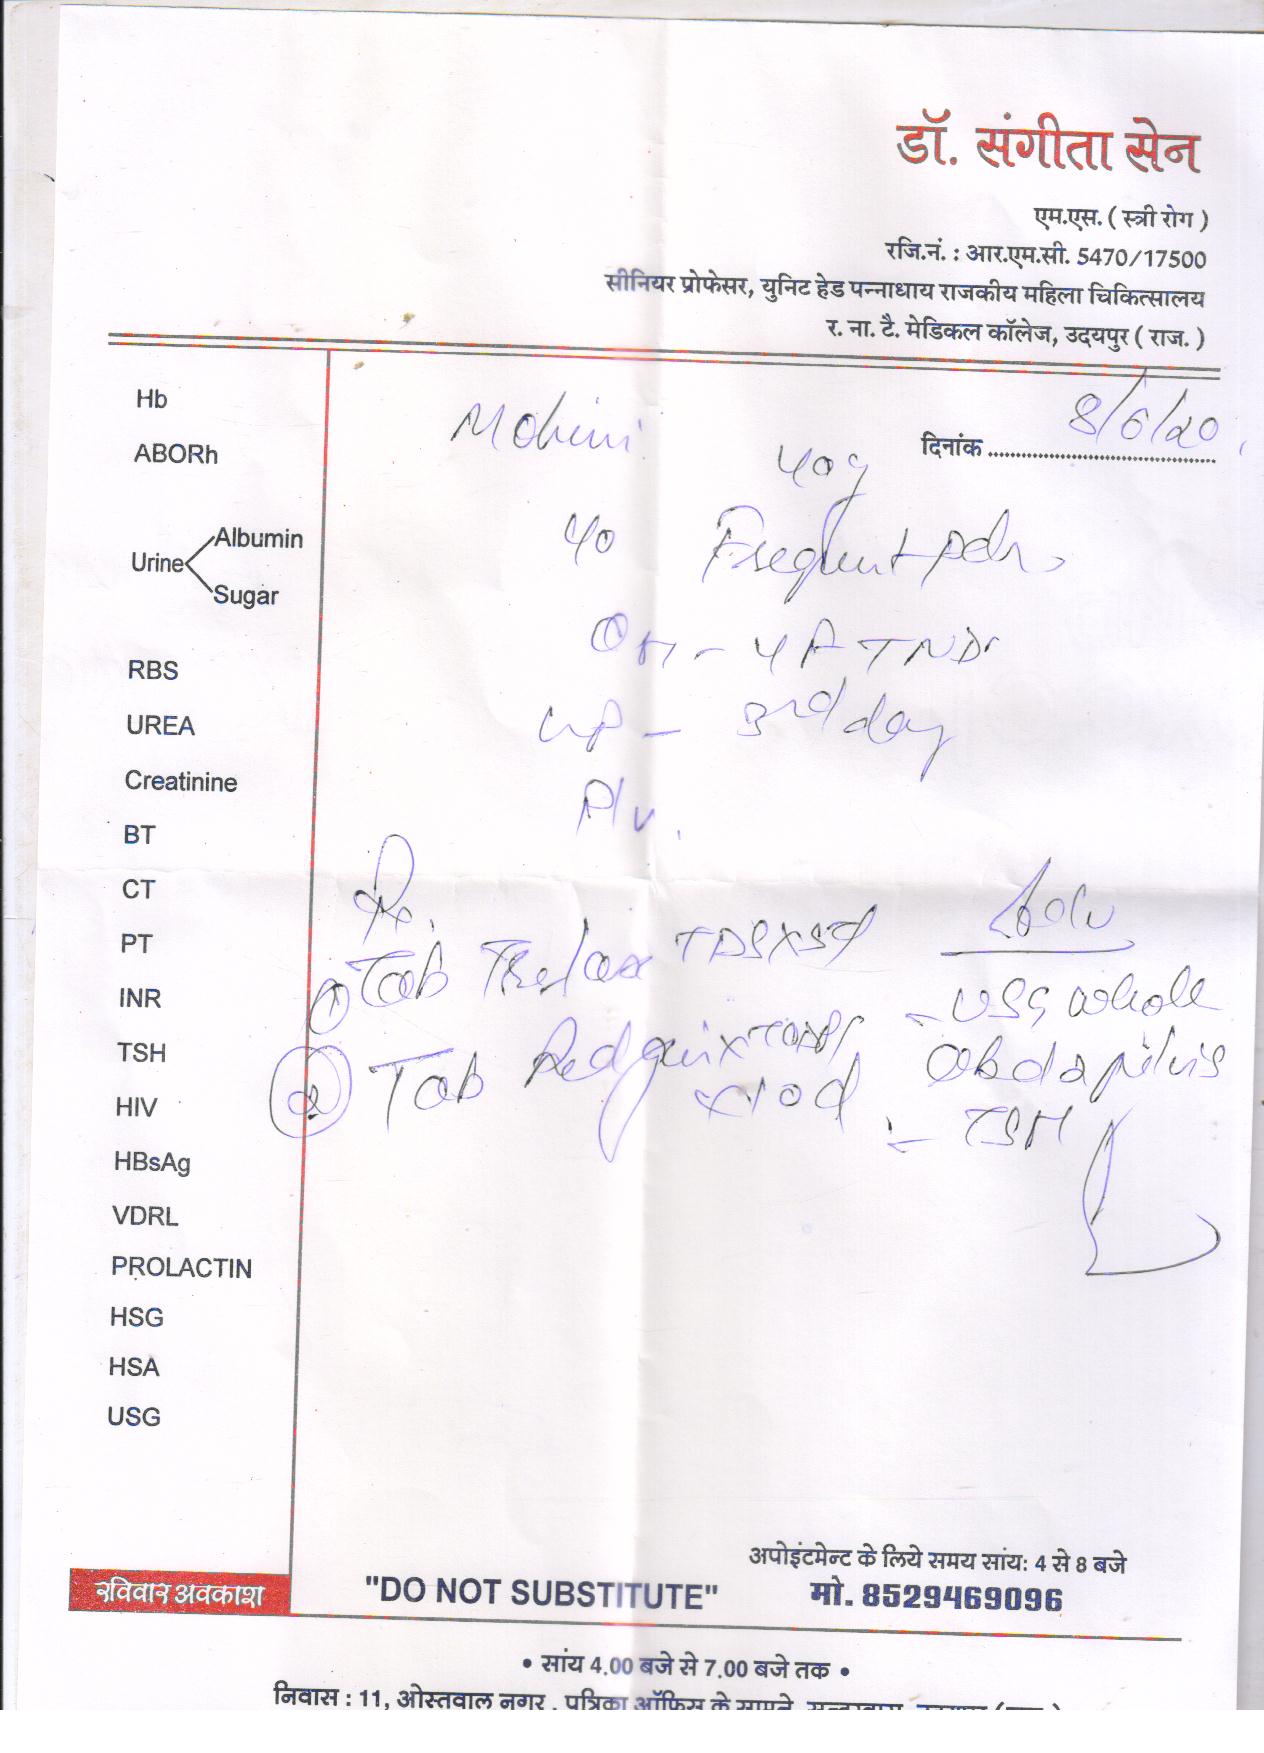 डॉ. संगीता सेन
एम.एस. ( स्त्री रोग )
रजि.नं. : आर.एम.सी. 5470/17500
सीनियर प्रोफेसर, युनिट हेड पन्नाधाय राजकीय महिला चिकित्सालय
र. ना. टै. मेडिकल कॉलेज, उदयपुर ( राज. )
दिनांक 8/6/20
Mohini
40y
Hb
ABORh
Urine
Albumin
Sugar
RBS
UREA
Creatinine
BT
CT
PT
INR
TSH
HIV
HBsAg
VDRL
PROLACTIN
HSG
HSA
USG
Frequent
3rd day
P/v.
Rx.
① Tab TDS x 5d
② Tab
x 10d
Adv
- USG whole
- TSH
अपोइंटमेन्ट के लिये समय सांय: 4 से 8 बजे
मो. 8529469096
रविवार अवकाश
"DO NOT SUBSTITUTE"
• सांय 4.00 बजे से 7.00 बजे तक •
निवास : 11, ओस्तवाल नगर, पत्रिका ऑफिस के सामने,